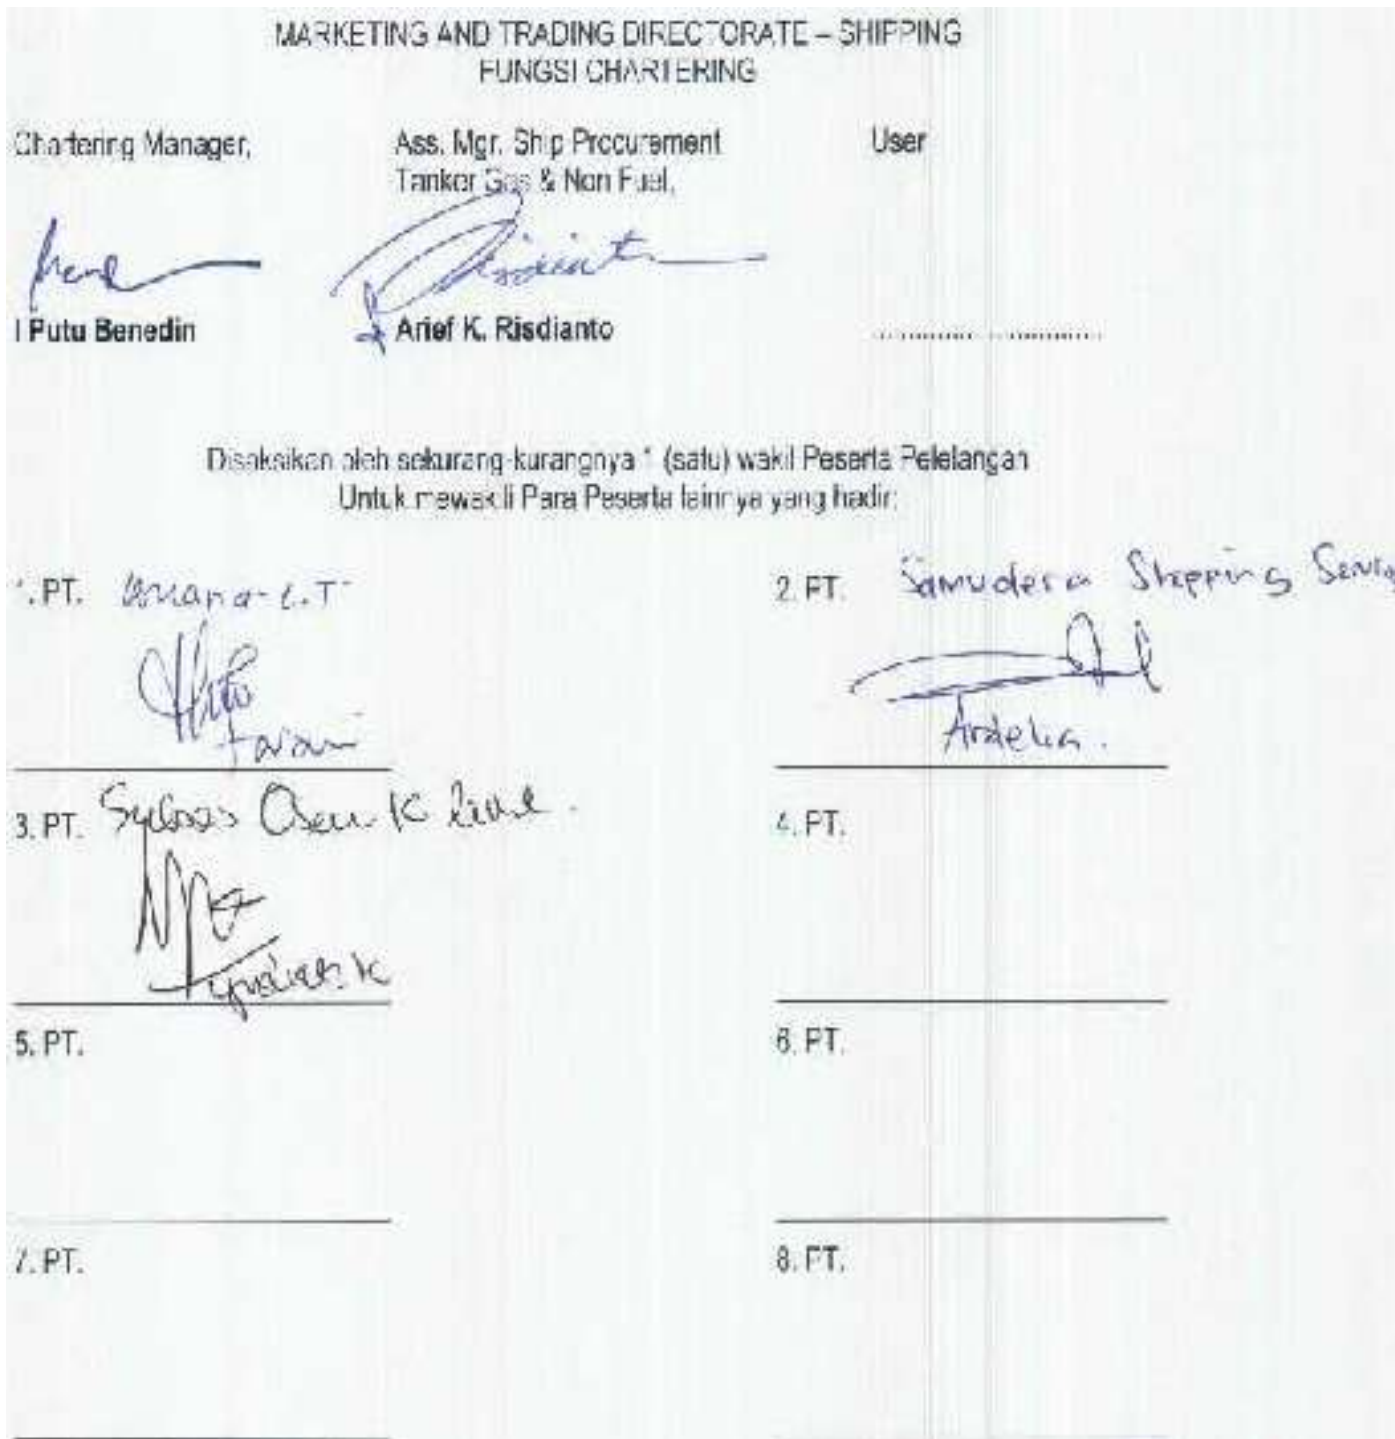 MARKETING AND TRADING DIRECTORATE – SHIPPING
FUNGSI CHARTERING
Chartering Manager,
Ass. Mgr. Ship Procurement
Tanker Gas & Non Fuel,
User
I Putu Benedin
Arief K. Risdianto
....................
Disaksikan oleh sekurang-kurangnya 1 (satu) wakil Peserta Pelelangan
Untuk mewakili Para Peserta lainnya yang hadir:
1. PT.
2. PT. Samudera Shipping
Ardelia.
3. PT.
4. PT.
5. PT.
6. PT.
7. PT.
8. PT.